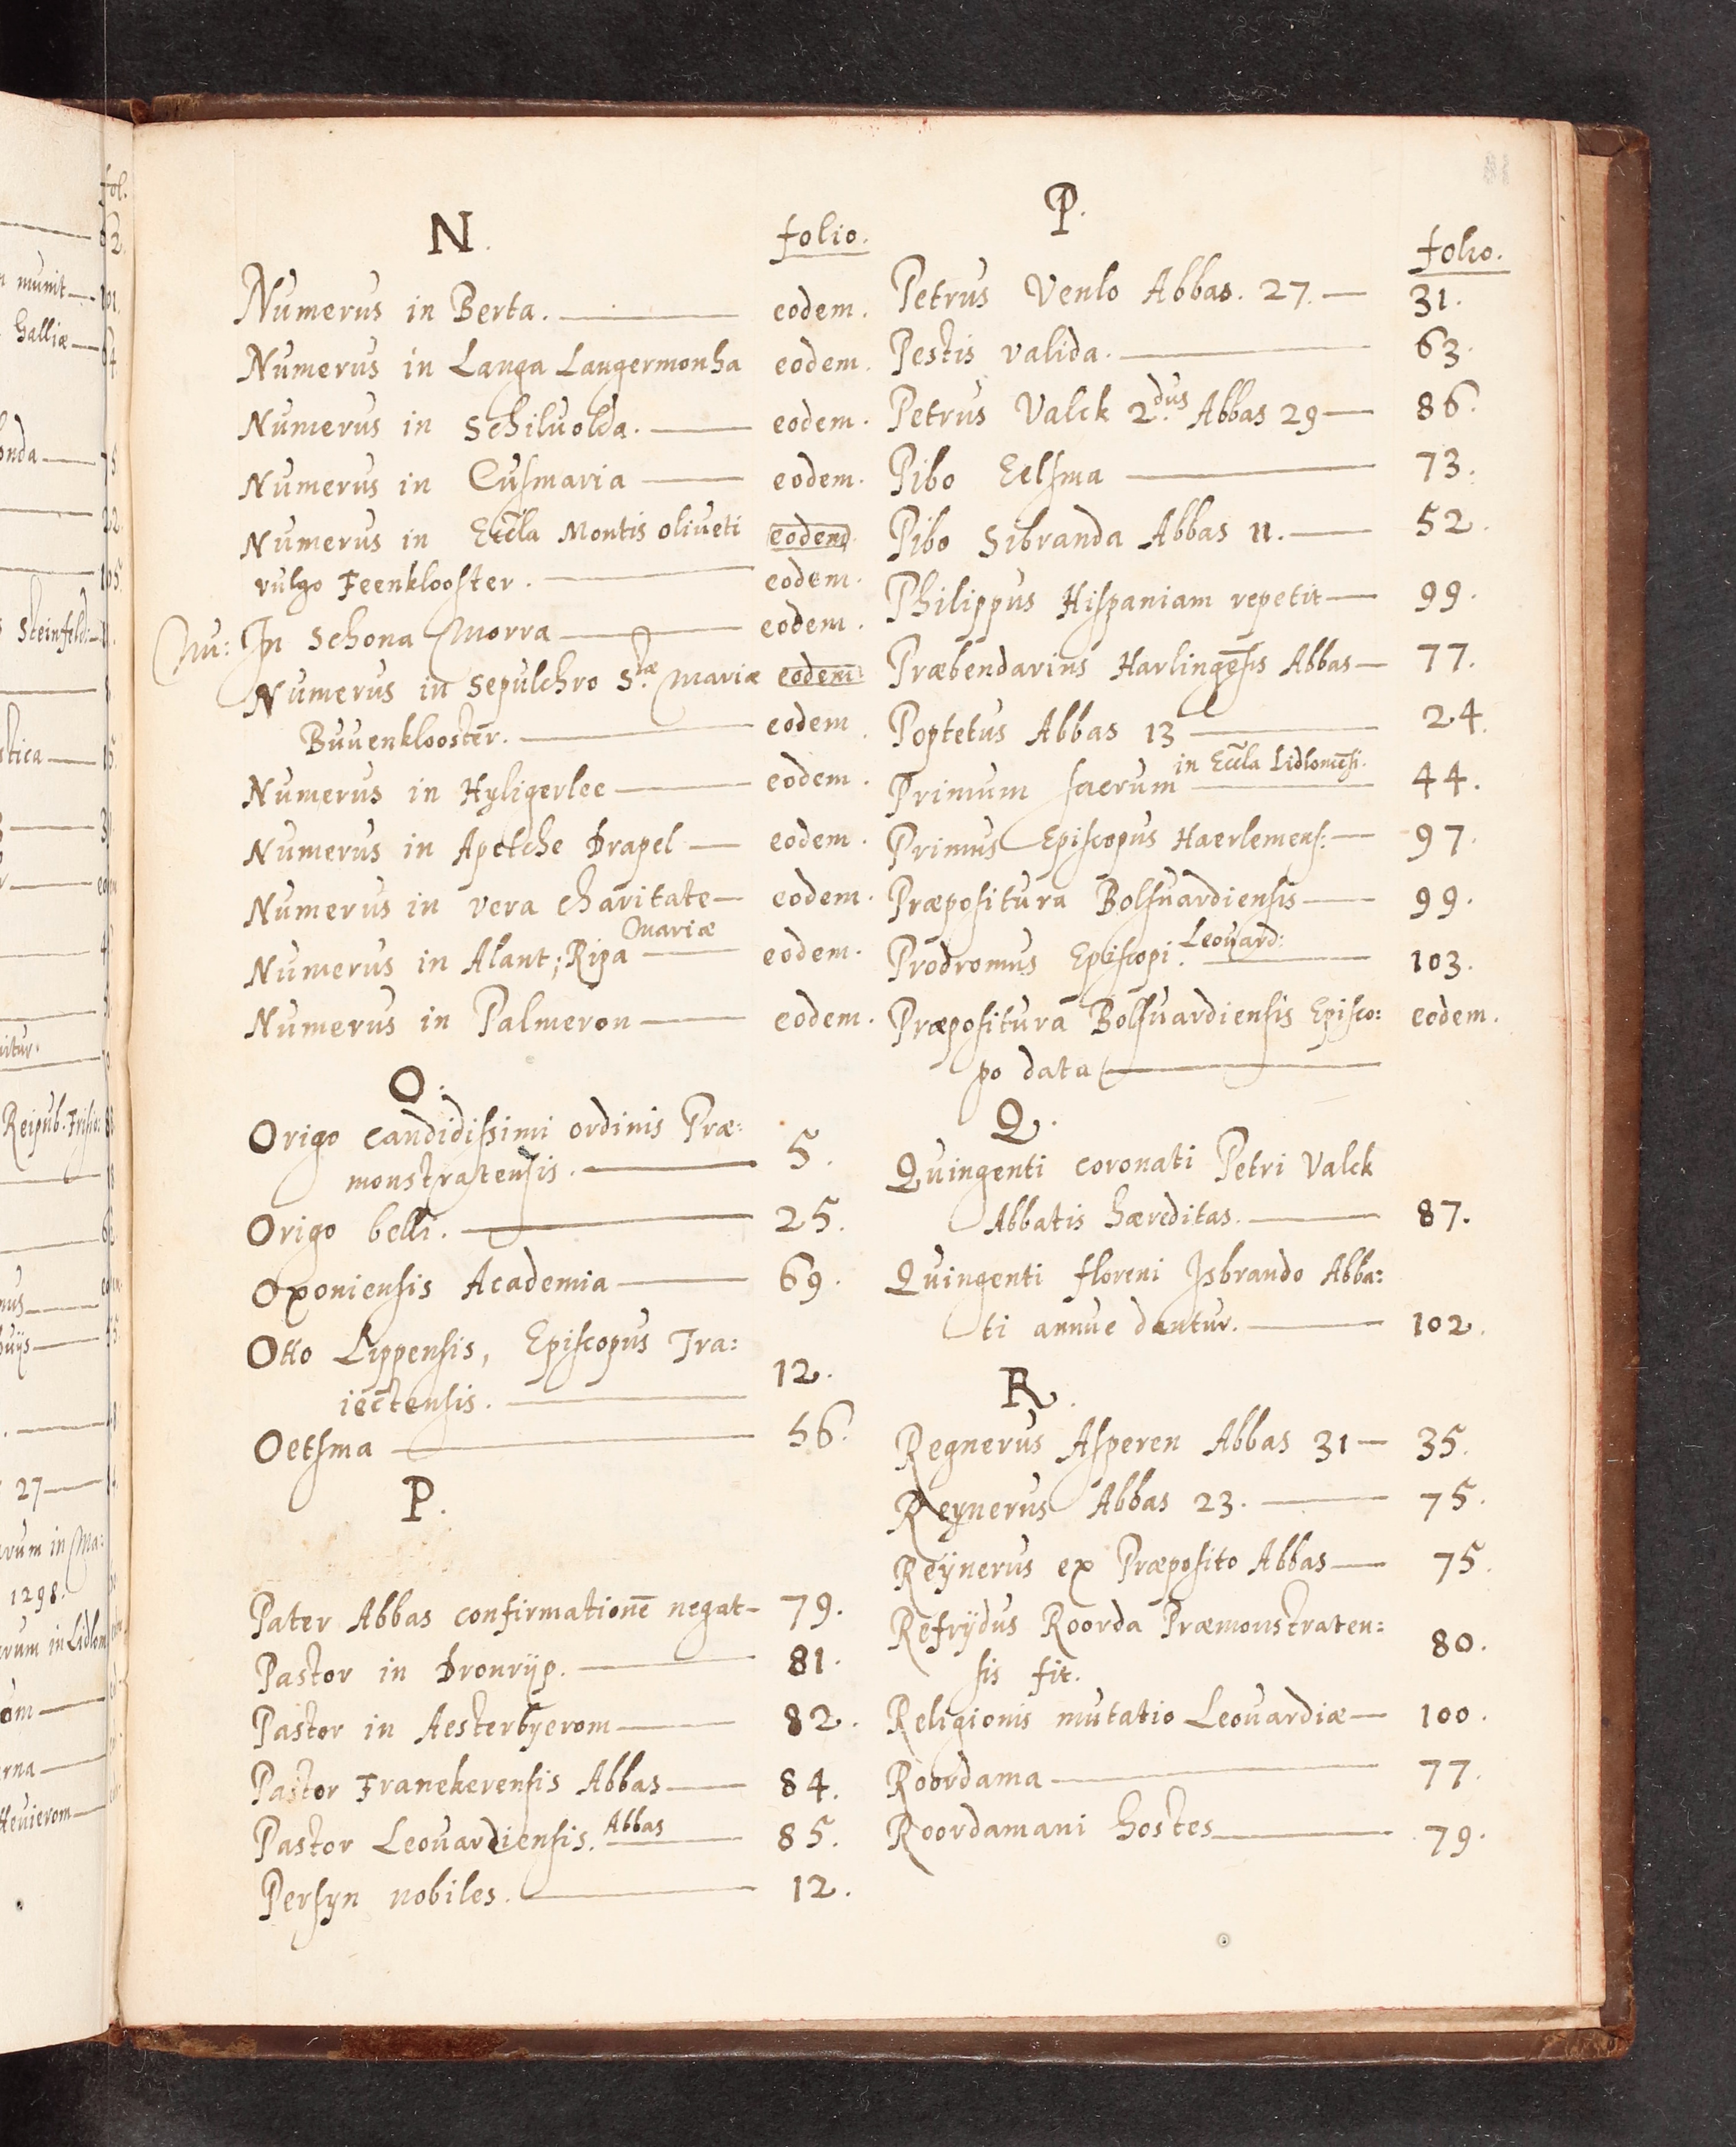 N.
folio.
Numerus in Berta. eodem.
Numerus in Langa Langermonha eodem.
Numerus in Schiluolda. eodem.
Numerus in Cusmaria eodem.
Numerus in Eccla Montis oliveti eodem
vulgo Feenklooster. eodem.
Nu: In Schona Morra eodem.
Numerus in Sepulchro S.tæ Mariæ eodem
Buuenklooster. eodem.
Numerus in Hyligerlee eodem.
Numerus in Apelche Drapel eodem.
Numerus in vera charitate eodem.
Mariæ
Numerus in Alant; Ripa eodem.
Numerus in Palmeron eodem.
O.
Origo candidissimi ordinis Præ:
monstratensis. 5.
Origo belli. 25.
Oxoniensis Academia 69.
Otto Lippensis, Episcopus Tra:
iectensis. 12.
Oetsma 56.
P.
Pater Abbas confirmationē negat 79.
Pastor in Dronrijp. 81.
Pastor in Aesterbyerom 82.
Pastor Franekerensis Abbas 84.
Pastor Leovardiensis. Abbas 85.
Persyn nobiles. 12.
P.
folio.
Petrus Venlo Abbas. 27. 31.
Pestis valida. 63.
Petrus Valck 2.dus Abbas 29 86.
Pibo Eelsma 73.
Pibo Sibranda Abbas 11. 52.
Philippus Hispaniam repetit 99.
Præbendarius Harlingēsis Abbas 77.
Poptetus Abbas 13 24.
in Eccla Lidlomēsi.
Primum sacrum 44.
Primus Episcopus Haerlemens: 97.
Præpositura Bolsuardiensis 99.
Prodromus Episcopi. Leovard: 103.
Præpositura Bolsuardiensis Episco: eodem.
po data
Q.
Quingenti coronati Petri Valck
Abbatis hæreditas. 87.
Quingenti floreni Isbrando Abba:
ti annue dantur. 102.
R.
Regnerus Asperen Abbas 31 35.
Reynerus Abbas 23. 75.
Reÿnerus ex Præposito Abbas 75.
Refrijdus Roorda Præmonstraten:
sis fit. 80.
Religionis mutatio Leovardiæ 100.
Roordama 77.
Roordamani hostes 79.